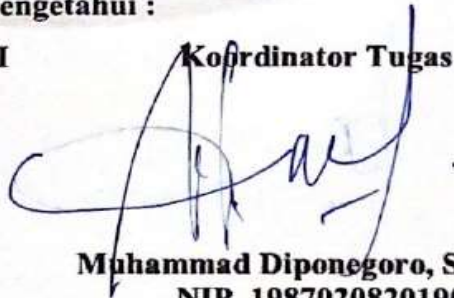 engetahui :
I Koordinator Tugas
Muhammad Diponegoro, S
NIP. 1987020820190